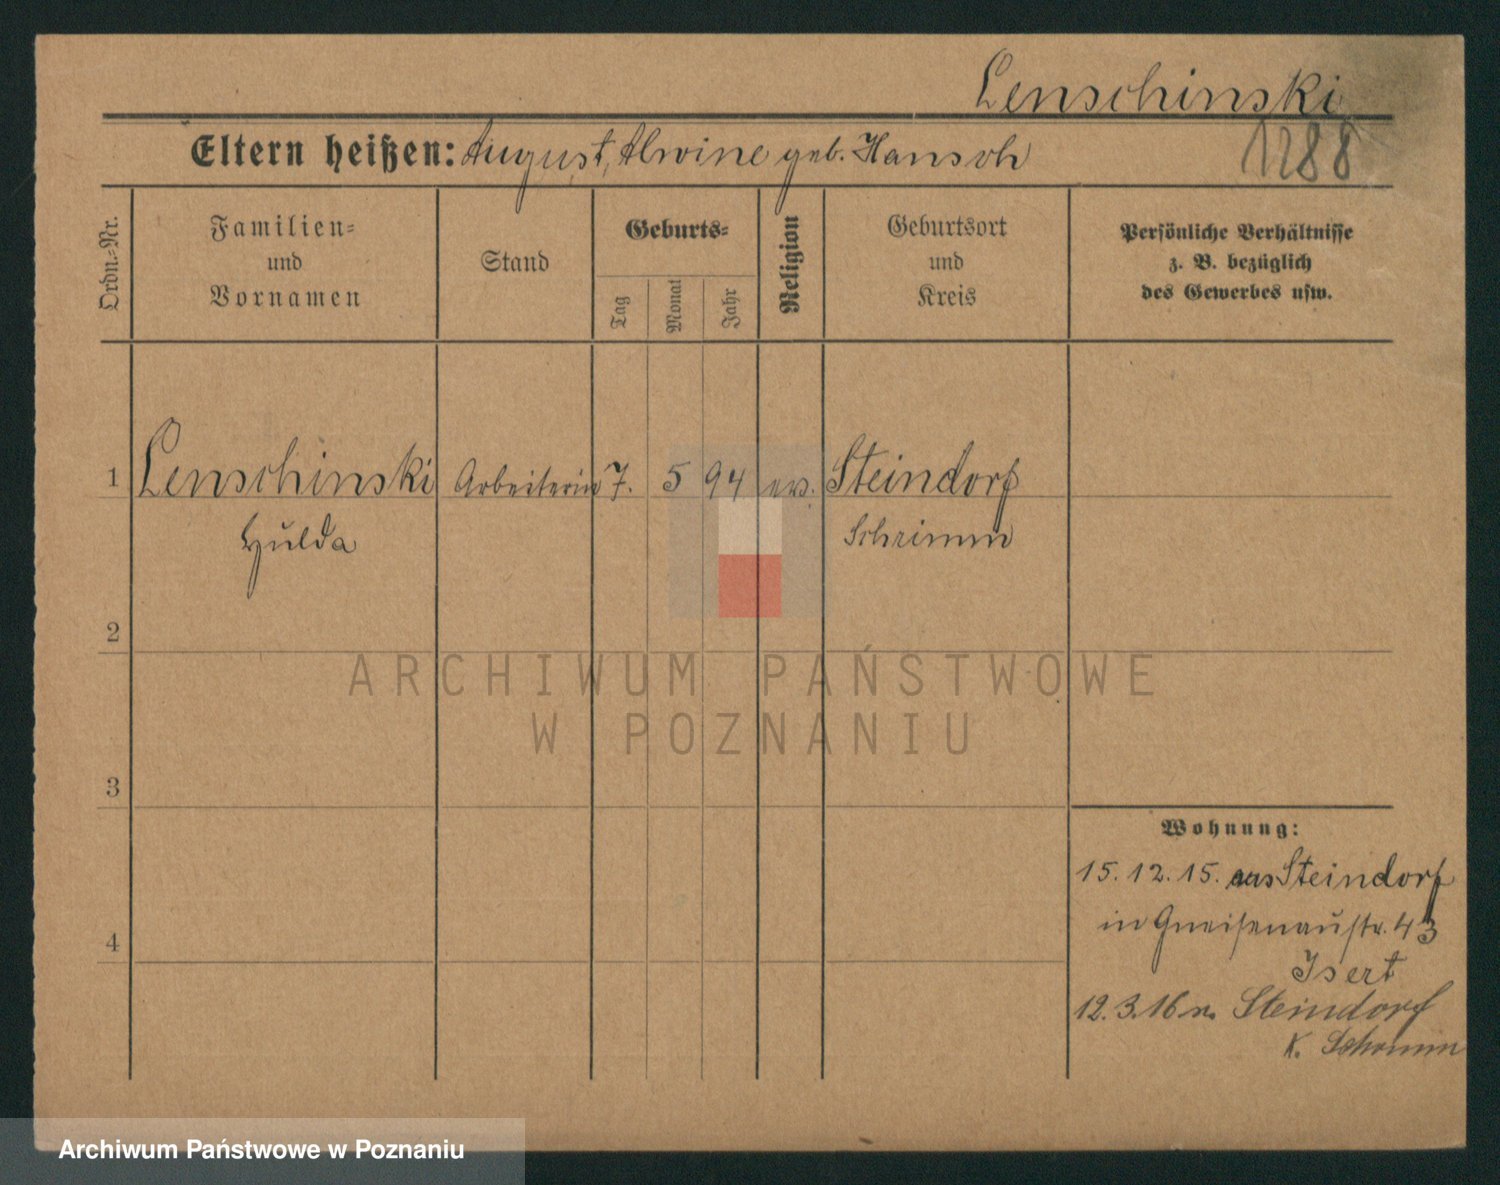 Lenschinski
1288
Eltern heißen: August, Alwine geb. Hansch
Ordn.-Nr.
Familien-
und
Vornamen
Stand
Geburts-
Tag
Monat
Jahr
Religion
Geburtsort
und
Kreis
Persönliche Verhältnisse
z. B. bezüglich
des Gewerbes usw.
1 Lenschinski Arbeiterin 7. 5 94 ev. Steindorf
Hulda Schrimm
2
ARCHIWUM PAŃSTWOWE
W POZNANIU
3
Wohnung:
15.12.15. aus Steindorf
in Gneisenaustr. 43
4
Isert
12.3.16 n. Steindorf
K. Schrimm
Archiwum Państwowe w Poznaniu